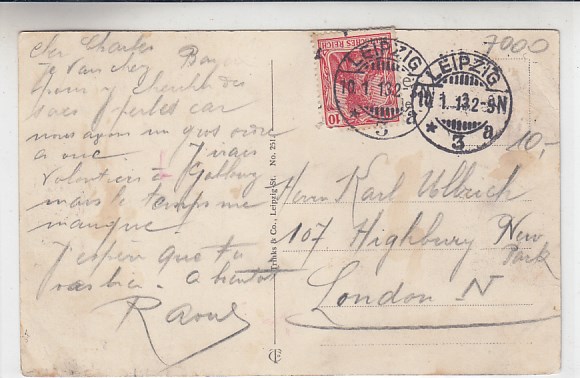 Cher Charles
Je vais chez
pour y chercher des
sacs perles car
nous avons un gros ordre
J'irais
volontiers à
mais le temps me
manque.
J'espère que tu
vas bien. A bientôt
Raoul
Trinks & Co., Leipzig St. No. 251.
DEUTSCHES REICH
10
LEIPZIG
10.1.13.2-3N
* 3 a
LEIPZIG
10.1.13.2-3N
* 3 a
7000
10,-
Herrn Karl Ullrich
107 Highbury New
Park
London N